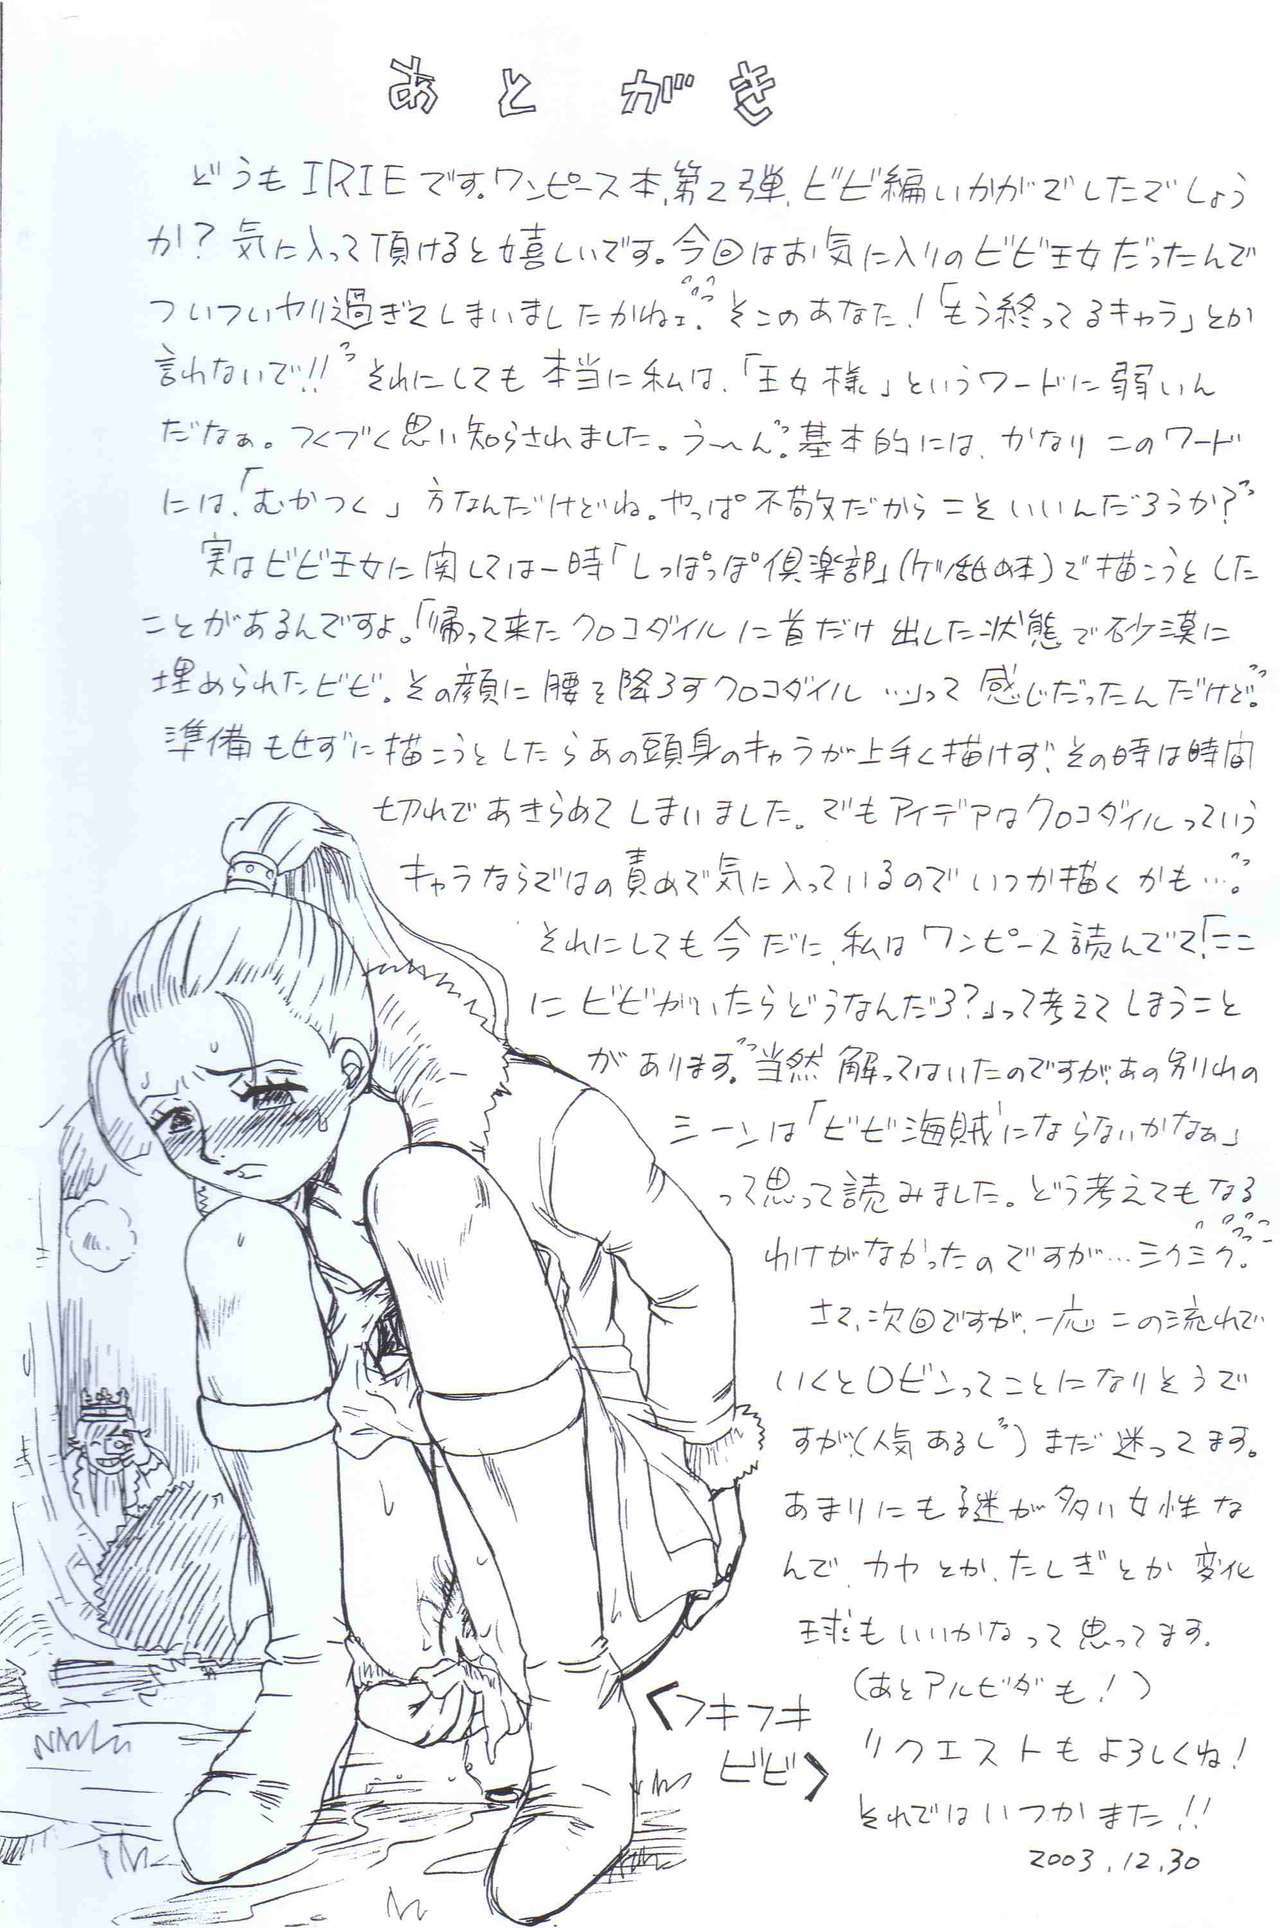 あとがき
どうもIRIEです。ワンピース本、第2弾、ビビ編いかがでしたでしょう
か？気に入って頂けると嬉しいです。今回はお気に入りのビビ王女だったんで
ついついヤリ過ぎてしまいましたかねェ。そこのあなた！「もう終ってるキャラ」とか
言わないで!!それにしても本当に私は、「王女様」というワードに弱いん
だなぁ。つくづく思い知らされました。う〜ん。基本的には、かなりこのワード
には、「むかつく」方なんだけどね。やっぱ不敬だからこそいいんだろうか？
実はビビ王女に関しては一時「しっぽっぽ倶楽部」で描こうとした
ことがあるんですよ。「帰って来たクロコダイルに首だけ出した状態で砂漠に
埋められたビビ。その顔に腰を降ろすクロコダイル…」って感じだったんだけど。
準備もせずに描こうとしたらあの頭身のキャラが上手く描けず、その時は時間
切れであきらめてしまいました。でもアイデアはクロコダイルっていう
キャラならではの責めで気に入っているのでいつか描くかも…。
それにしても今だに、私はワンピース読んでて、「ここ
にビビがいたらどうなんだろ？」って考えてしまうこと
があります。当然解ってはいたのですが、あの別れの
シーンは「ビビ海賊にならないかなぁ」
って思って読みました。どう考えてもなる
わけがなかったのですが…ミクミク。
さて、次回ですが、一応この流れで
いくとロビンってことになりそうで
すが、（人気あるし）まだ迷ってます。
あまりにも謎が多い女性な
んで、カヤとか、たしぎとか変化
球もいいかなって思ってます。
（あとアルビダも！）
リクエストもよろしくね！
それではいつかまた!!
2003.12.30
<フキフキ
ビビ>